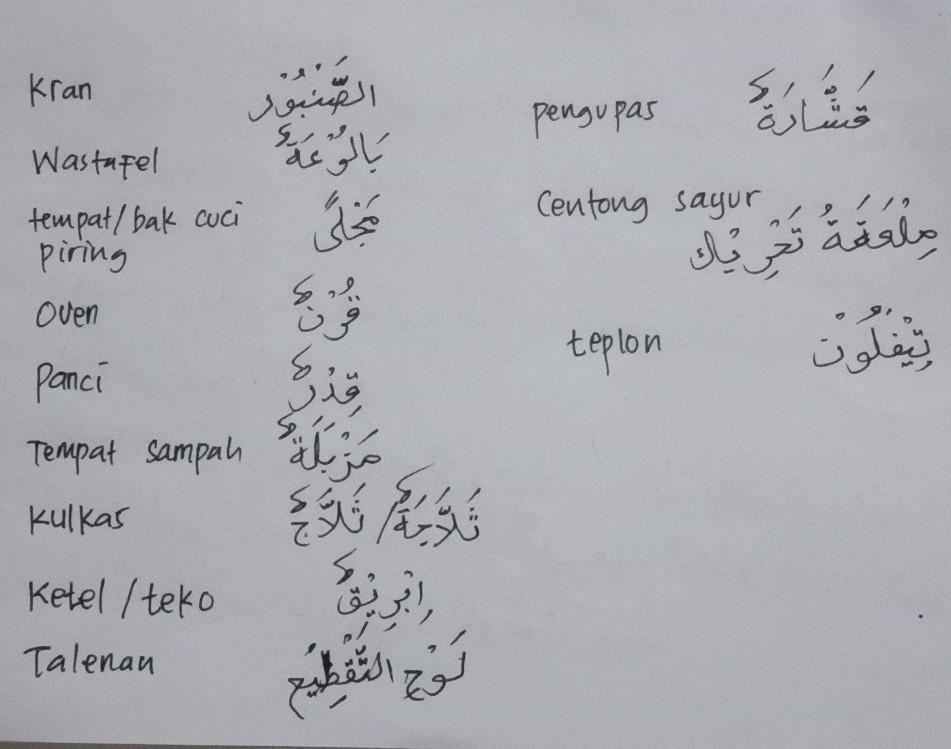 Kran الصَّنْبُوْرَ
Wastafel بَالُوْعَةٌ
tempat/bak cuci مَجْلًى
piring
Oven فُرْنٌ
Panci قِدْرٌ
Tempat sampah مَزْبَلَةٌ
Kulkas ثَلَّاجَةٌ/ ثَلَّاجٌ
Ketel /teko اِبْرِيْقٌ
Talenan لَوْحِ التَّقْطِيْعِ
pengupas قَشَّارَةٌ
Centong sayur
مِلْعَقَةُ تَحْرِيْك
teplon تِيْفَلُوْن